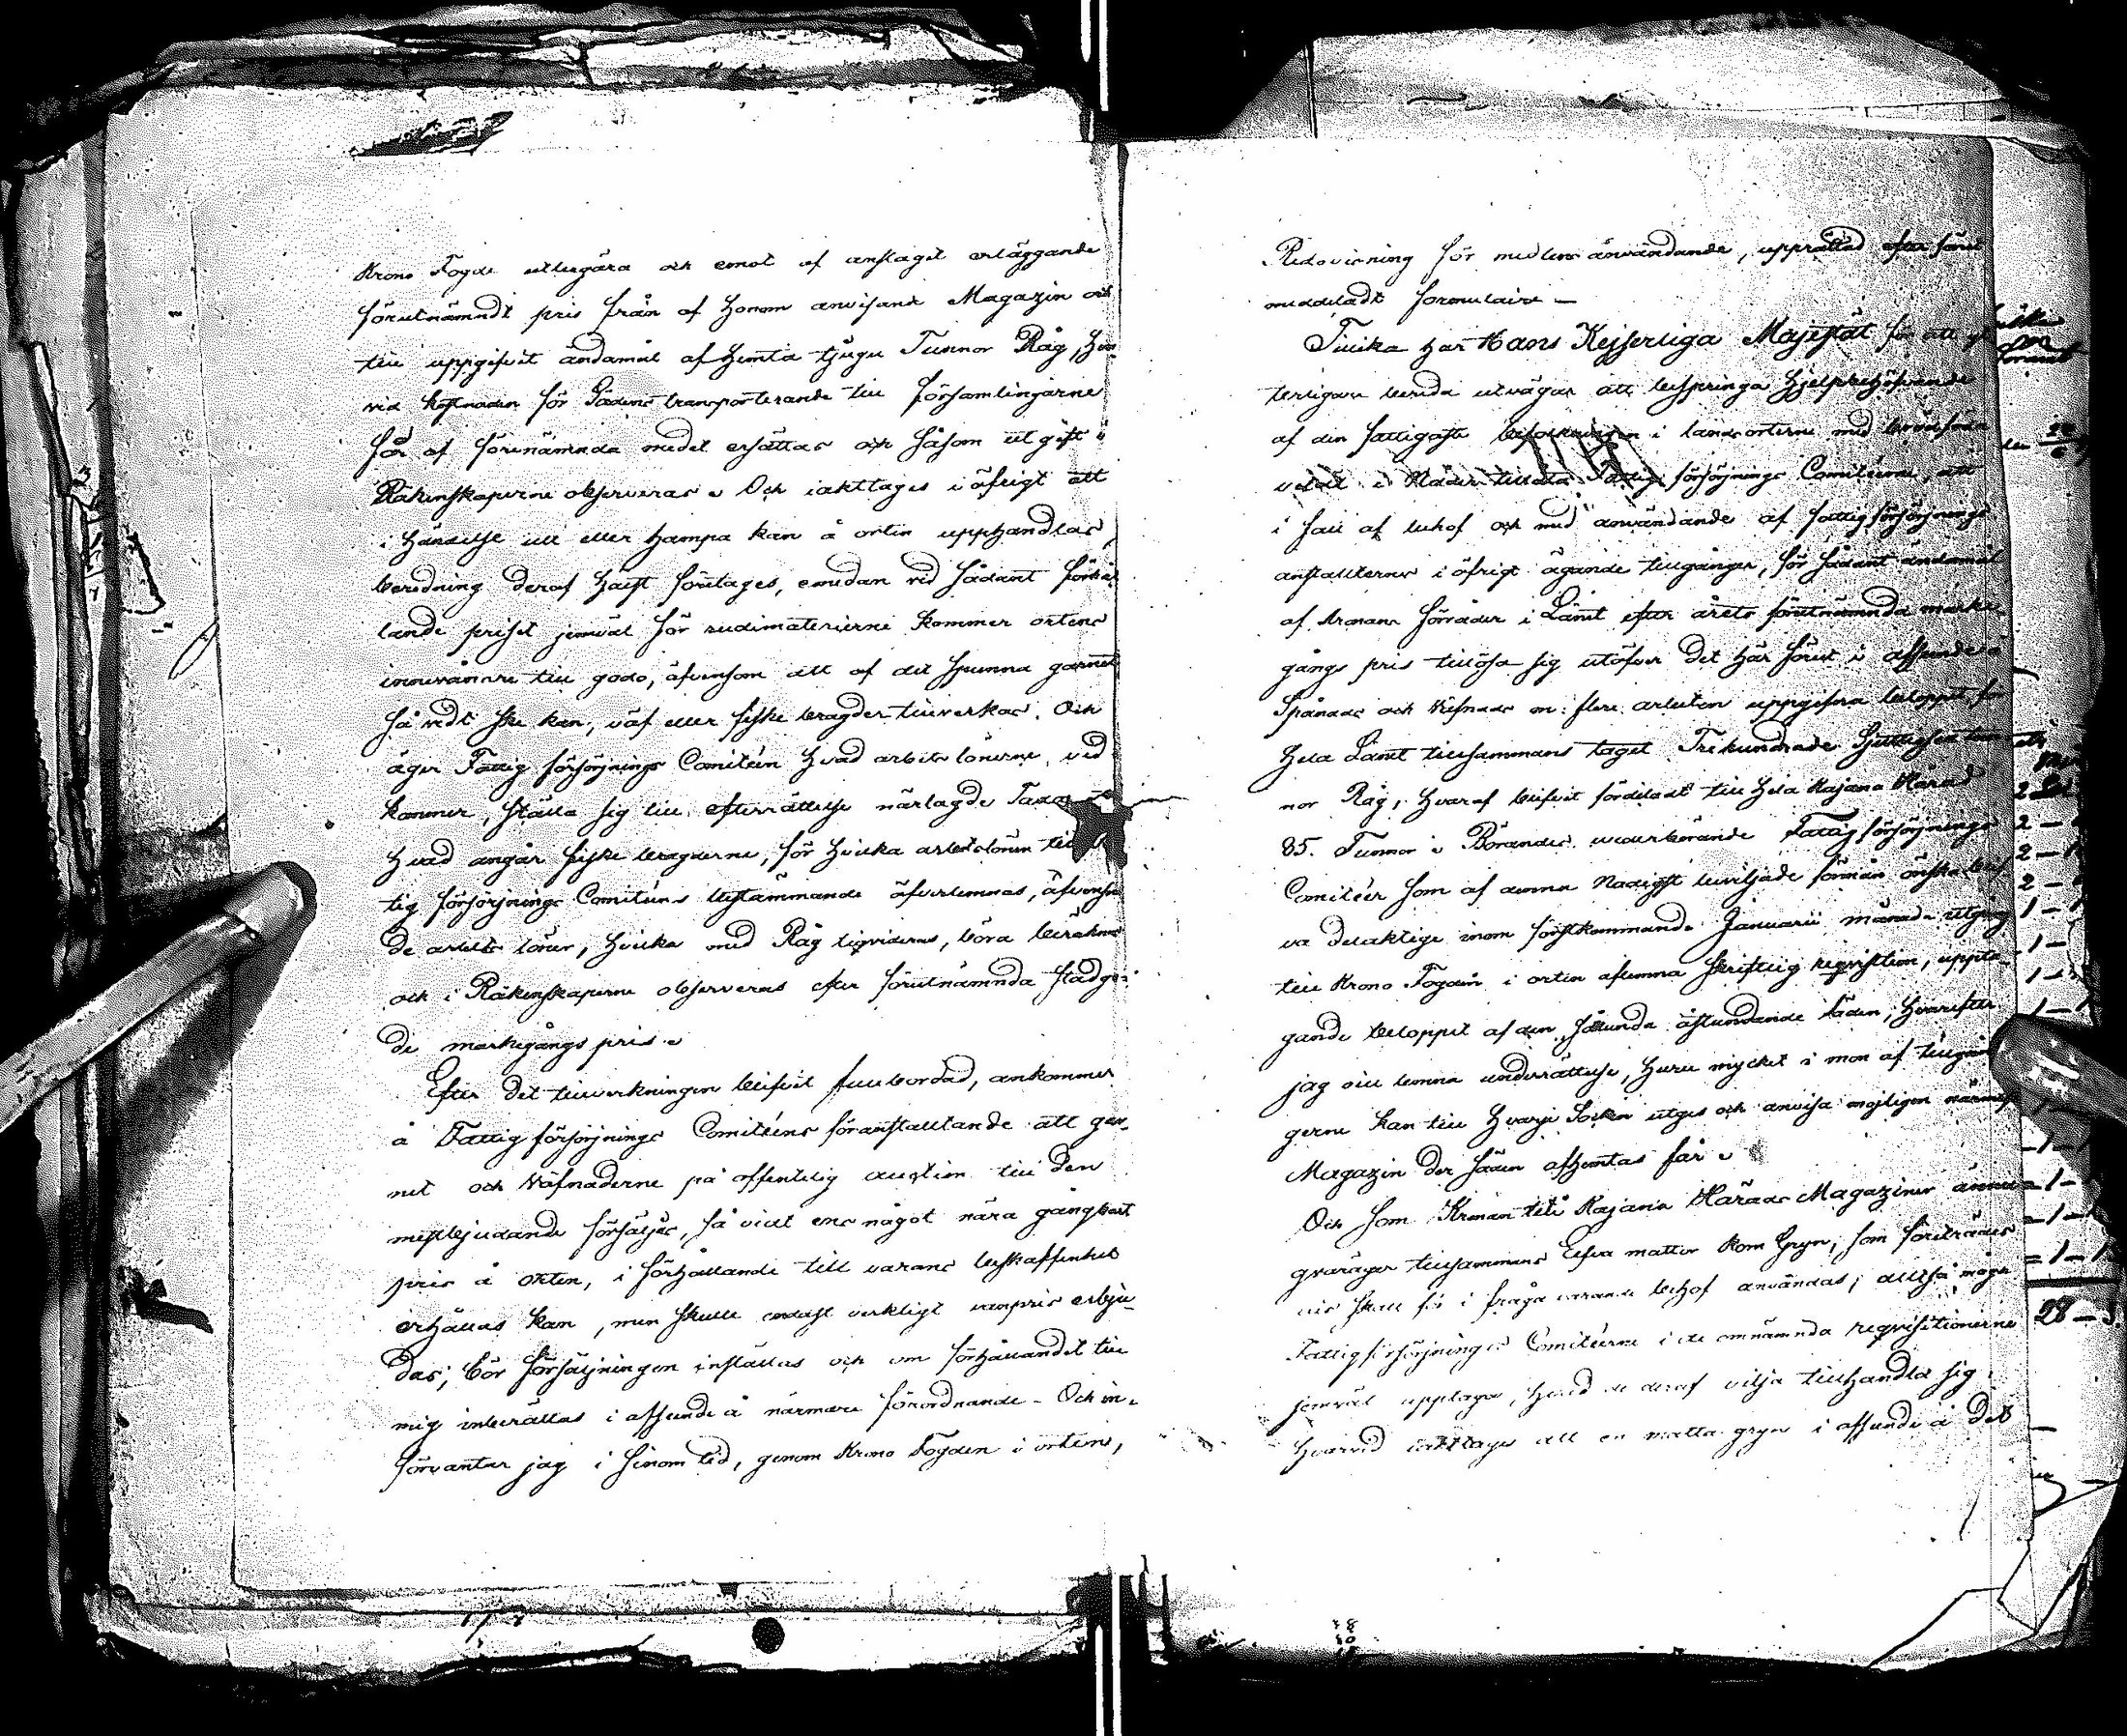 Krono Fogde utbegära och emot af anslaget erläggande
förutnämndt pris från af honom anvisande Magazin och
till uppgifvit ändamål afhemta tjugu Tunnor Råg, hvar-
vid kostnaden för Sädens transporterande till församlingarne
får af förenämnda medel ersättas och såsom utgift i
Räkenskaperne observeras. Och iakttages i öfrigt att
i händelse ull eller hampa kan å orten upphandlas,
beredning deraf hälst företages, emedan vid sådant förhål-
lande priset jemväl för rudimaterierne kommer ortens
innevånare till godo, äfvensom att af det spunna garnet
så vidt ske kan, väf eller fiske bragder tillverkas. Och
äger Fattig försörjnings Comitéen hvad arbets lönerne, vid-
kommer, ställa sig till efterrättelse närlagde Taxa
hvad angår fiske bragderne, för hvilka arbetslönen till
tig försörjnings Comitéens bestämmande öfverlemnas, äfvensom
de arbets löner, hvilka med Råg liqvideras, böra beräknas
och i Räkenskaperne observeras efter förutnämnda stadga-
de markegångs pris.
Efter det tillverkningen blifvit fullbordad, ankommer
å Fattig försörjnings Comitéens föranstaltande att gar-
net och Väfnaderne på offentelig auction till den
mestbjudande försäljes, så vidt ens något nära gångbart
pris å orten, i förhållande till varans beskaffenhet
erhållas kan, men skulle endast verkligt vanpris erbju-
das; bör försäljningen inställas och om förhållandet till
mig inberättas i afseende å närmare förordnande. Och in-
förväntar jag i sinom tid, genom Krono Fogden i orten,
Redovisning för medlens användande, upprättad efter förut
meddeladt formulaire —
Tillika har Hans Kejserliga Majestät för att
terligare bereda utvägar att bespringa hjelpbehöfvande
af den fattigaste befolkningen i landsorterne med brödföda
velat i Nåder tillåta Fattig försörjnings Comitéerne, att
i fall af behof och med användande af fattigförsörjnings
anstalternes i öfrigt ägande tillgångar, för sådant ändamål
af Kronans förråder i Länet efter årets förutnämnda marke-
gångs pris tillösa sig utöfver det här förut i afseende å
Spånads och Väfnads m: fl: arbeten uppgifna beloppet, för
hela Länet tillsammans taget Trehundrade Sjuttiofem tun-
nor Råg, hvaraf blifvit fördeladt till hela Kajana Härad
85. Tunnor. Börandes vederbörande Fattigförsörjnings
Comitéer som af denna Nådigst beviljade förmån önska blif-
va delaktige inom förstkommande Januarii månads utgång
till Krono Fogden i orten aflemna skriftelig reqvisition, uppta-
gande beloppet af den sålunda åstundande Säden, hvarefter
jag vill lemna underrättelse, huru mycket i mon af tillgån-
gerne kan till hvarje Socken utges och anvisa möjligen närmaste
Magazin der säden afhemtas får.
Och som Kronan uti Kajana Härads Magaziner ännu
qvaräger tillsammans Elfva mattor Korn Gryn, som företrädes-
vis skall för i fråga varande behof användas; alltså måga
Fattigförsörjnings Comitéerne i de omnämnda reqvisitionerne
jemväl upptaga, hvad de deraf vilja tillhandla sig
hvarvid iakttages att en matta gryn i afseende å det
2 —
2 —
2 —
1 —
1 —
1 —
1 —
28 —